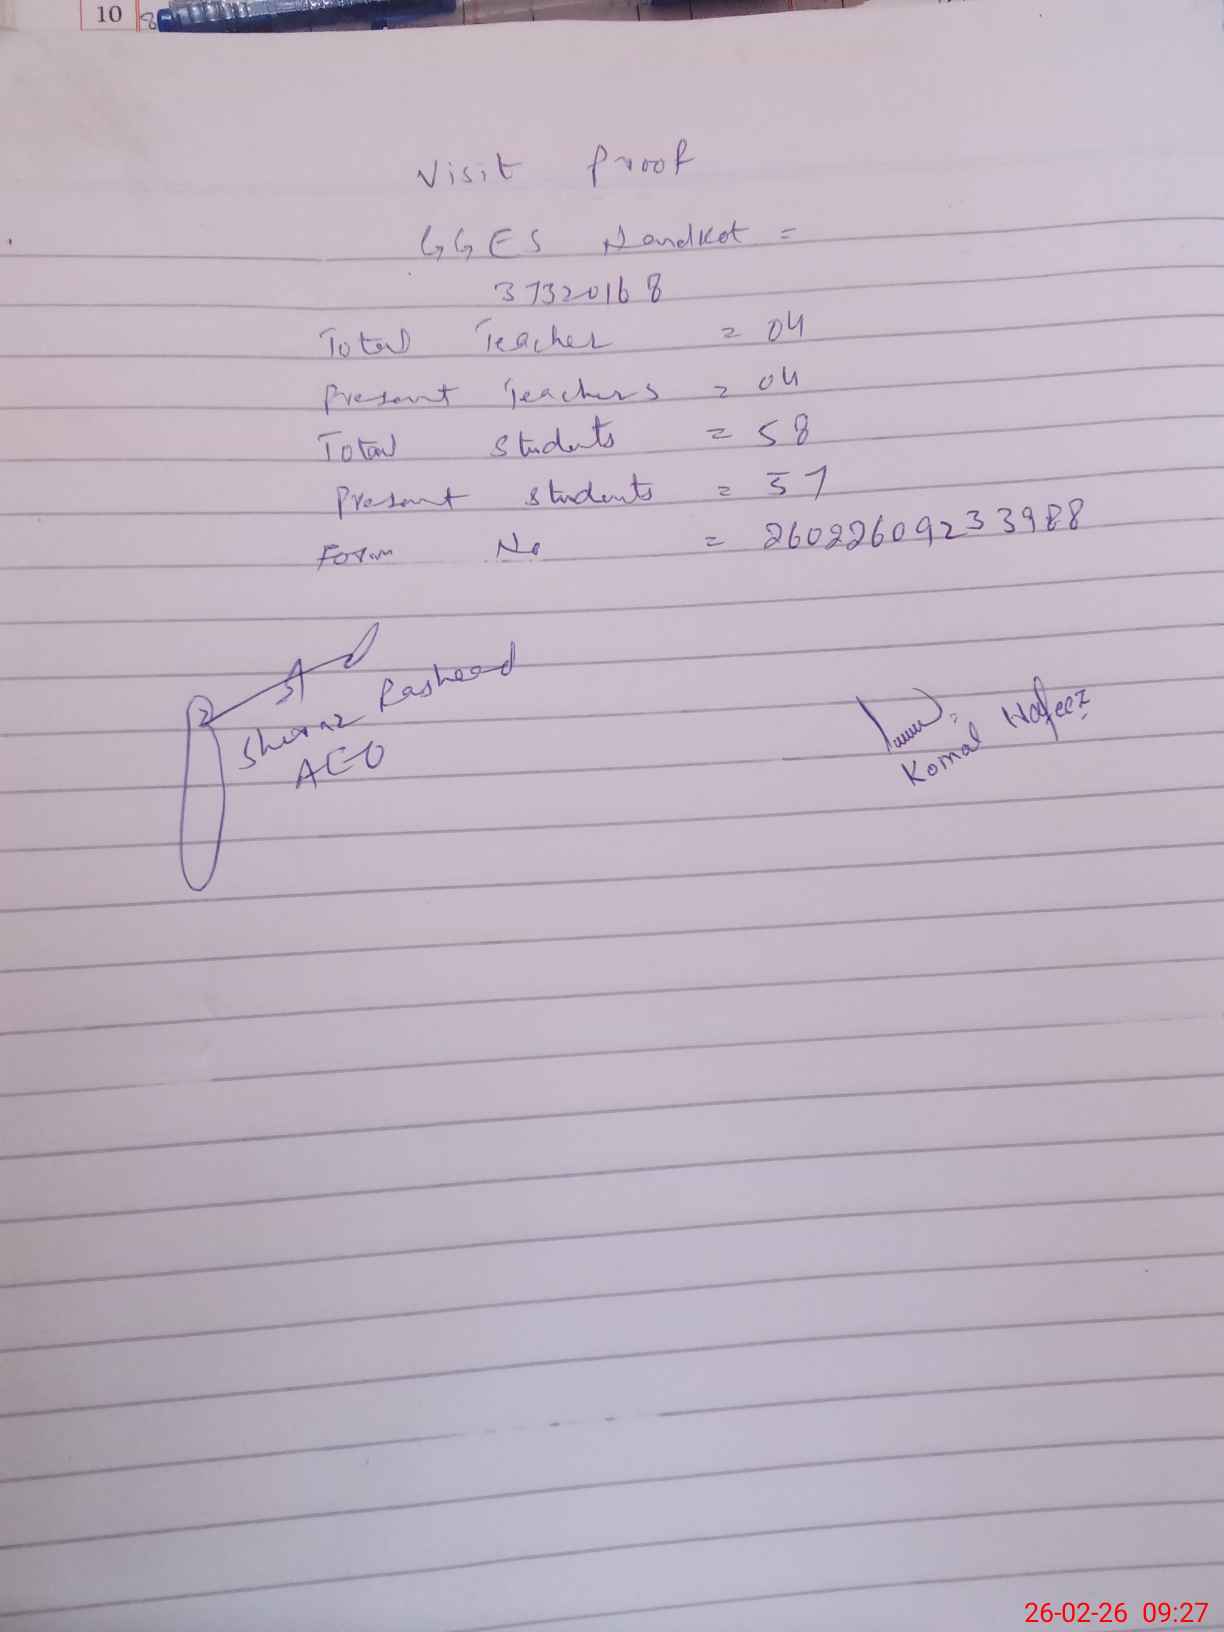 10
8
Visit Proof
GGES Nandkot =
37320168
Total Teacher = 04
Present Teachers = 04
Total students = 58
Present students = 57
Form No = 26022609233988
Sheraz Rasheed
AEO
Komal Hafeez
26-02-26 09:27